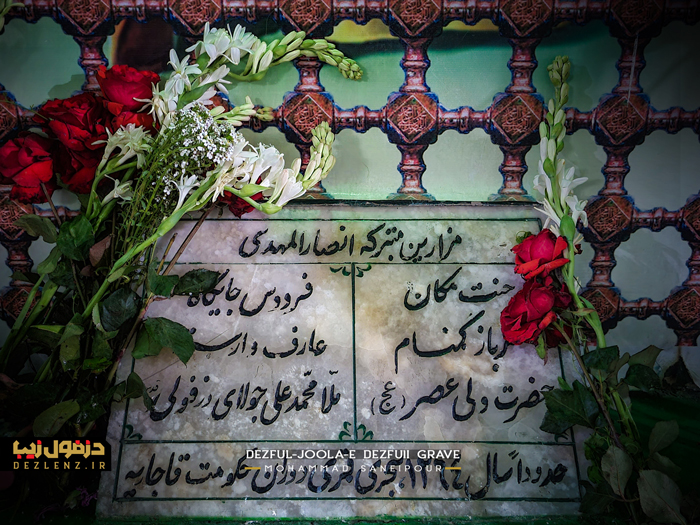 مزارین متبرکه انصارالمهدی
جنت مکان
سرباز گمنام
حضرت ولی عصر (عج)
فردوس جایگاه
عارف وارسته
ملا محمد علی جولای دزفولی
حدوداً سال
قمری دوران حکومت قاجاریه
DEZFUL-JOOLA-E DEZFULI GRAVE
MOHAMMAD SANEIPOUR
دزفول زیبا
DEZLENZ.IR